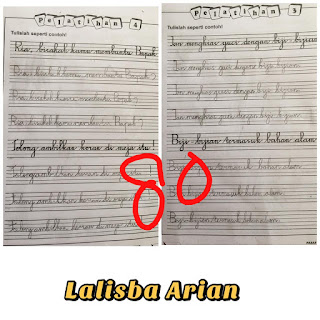 Pelatihan 4
Tulislah seperti contoh!
Risa, bisakah kamu membantu Bapak?
Risa, bisakah kamu membantu Bapak?
Risa, bisakah kamu membantu Bapak?
Risa, bisakah kamu membantu Bapak?
Tolong ambilkan koran di meja itu!
Tolong ambilkan koran di meja itu!
Tolong ambilkan koran di meja itu!
Tolong ambilkan koran di meja itu!
Pelatihan 5
Tulislah seperti contoh!
Ian menghias guci dengan biji-bijian.
Ian menghias guci dengan biji-bijian.
Ian menghias guci dengan biji-bijian.
Ian menghias guci dengan biji-bijian.
Biji-bijian termasuk bahan alam.
Biji-bijian termasuk bahan alam.
Biji-bijian termasuk bahan alam.
Biji-bijian termasuk bahan alam.
80
Lalisba Arian